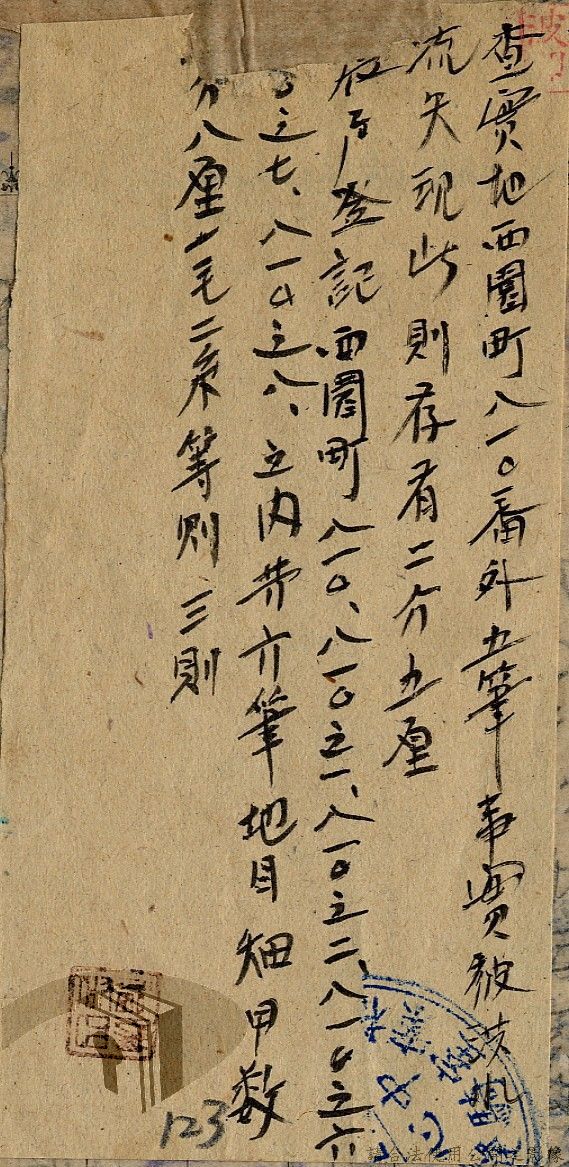 查實地西園町八一〇番外五筆事實被
流失現此則存有二分五厘
登記西園町八一〇、八一〇之一、八一〇之二、八一〇之六
〇之七、八一〇之八、之內共六筆地目畑甲数
分八厘 毛二糸等則三則
123